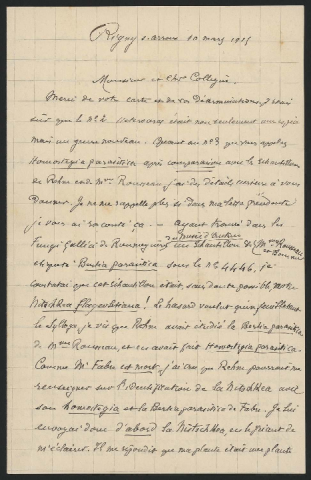 Rigny s. arroux 10 mars 1915
Monsieur et cher Collègue.
Merci de votre carte et de vos Déterminations, j'étais
sûr que le nº 2 était non seulement une espèce
mais un genre nouveau. Quant au nº 3 que vous appelez
Homostegia parasitica après comparaison avec les échantillons
de Rehm et de Mme Rousseau j'ai des détails inédits à vous
donner. Je ne me rappelle plus si dans ma lettre précédente
je vous ai raconté ça — ayant trouvé dans les
du musée d'Autun
Fungi Gallici de Roumeguère un échantillon de Mme Rousseau
et Bommer
étiqueté Bertia parasitica sous le nº 4446, j'ai
constaté que cet échantillon était, sans doute possible, notre
Nitschkea Flageoletiana! Le hasard voulut qu'en feuilletant
le Sylloge je vis que Rehm avait étudié la Bertia parasitica
de Mme Rousseau, et en avait fait Homostegia parasitica.
Comme Mr Fabre est mort, j'ai cru que Rehm pourrait me
renseigner sur l'identification de la Nitschkea avec
son homostegia et la Bertia parasitica de Fabre. Je lui
envoyai donc d'abord la Nitschkea, en le priant de
m'éclairer. Il me répondit que ma plante était une plante